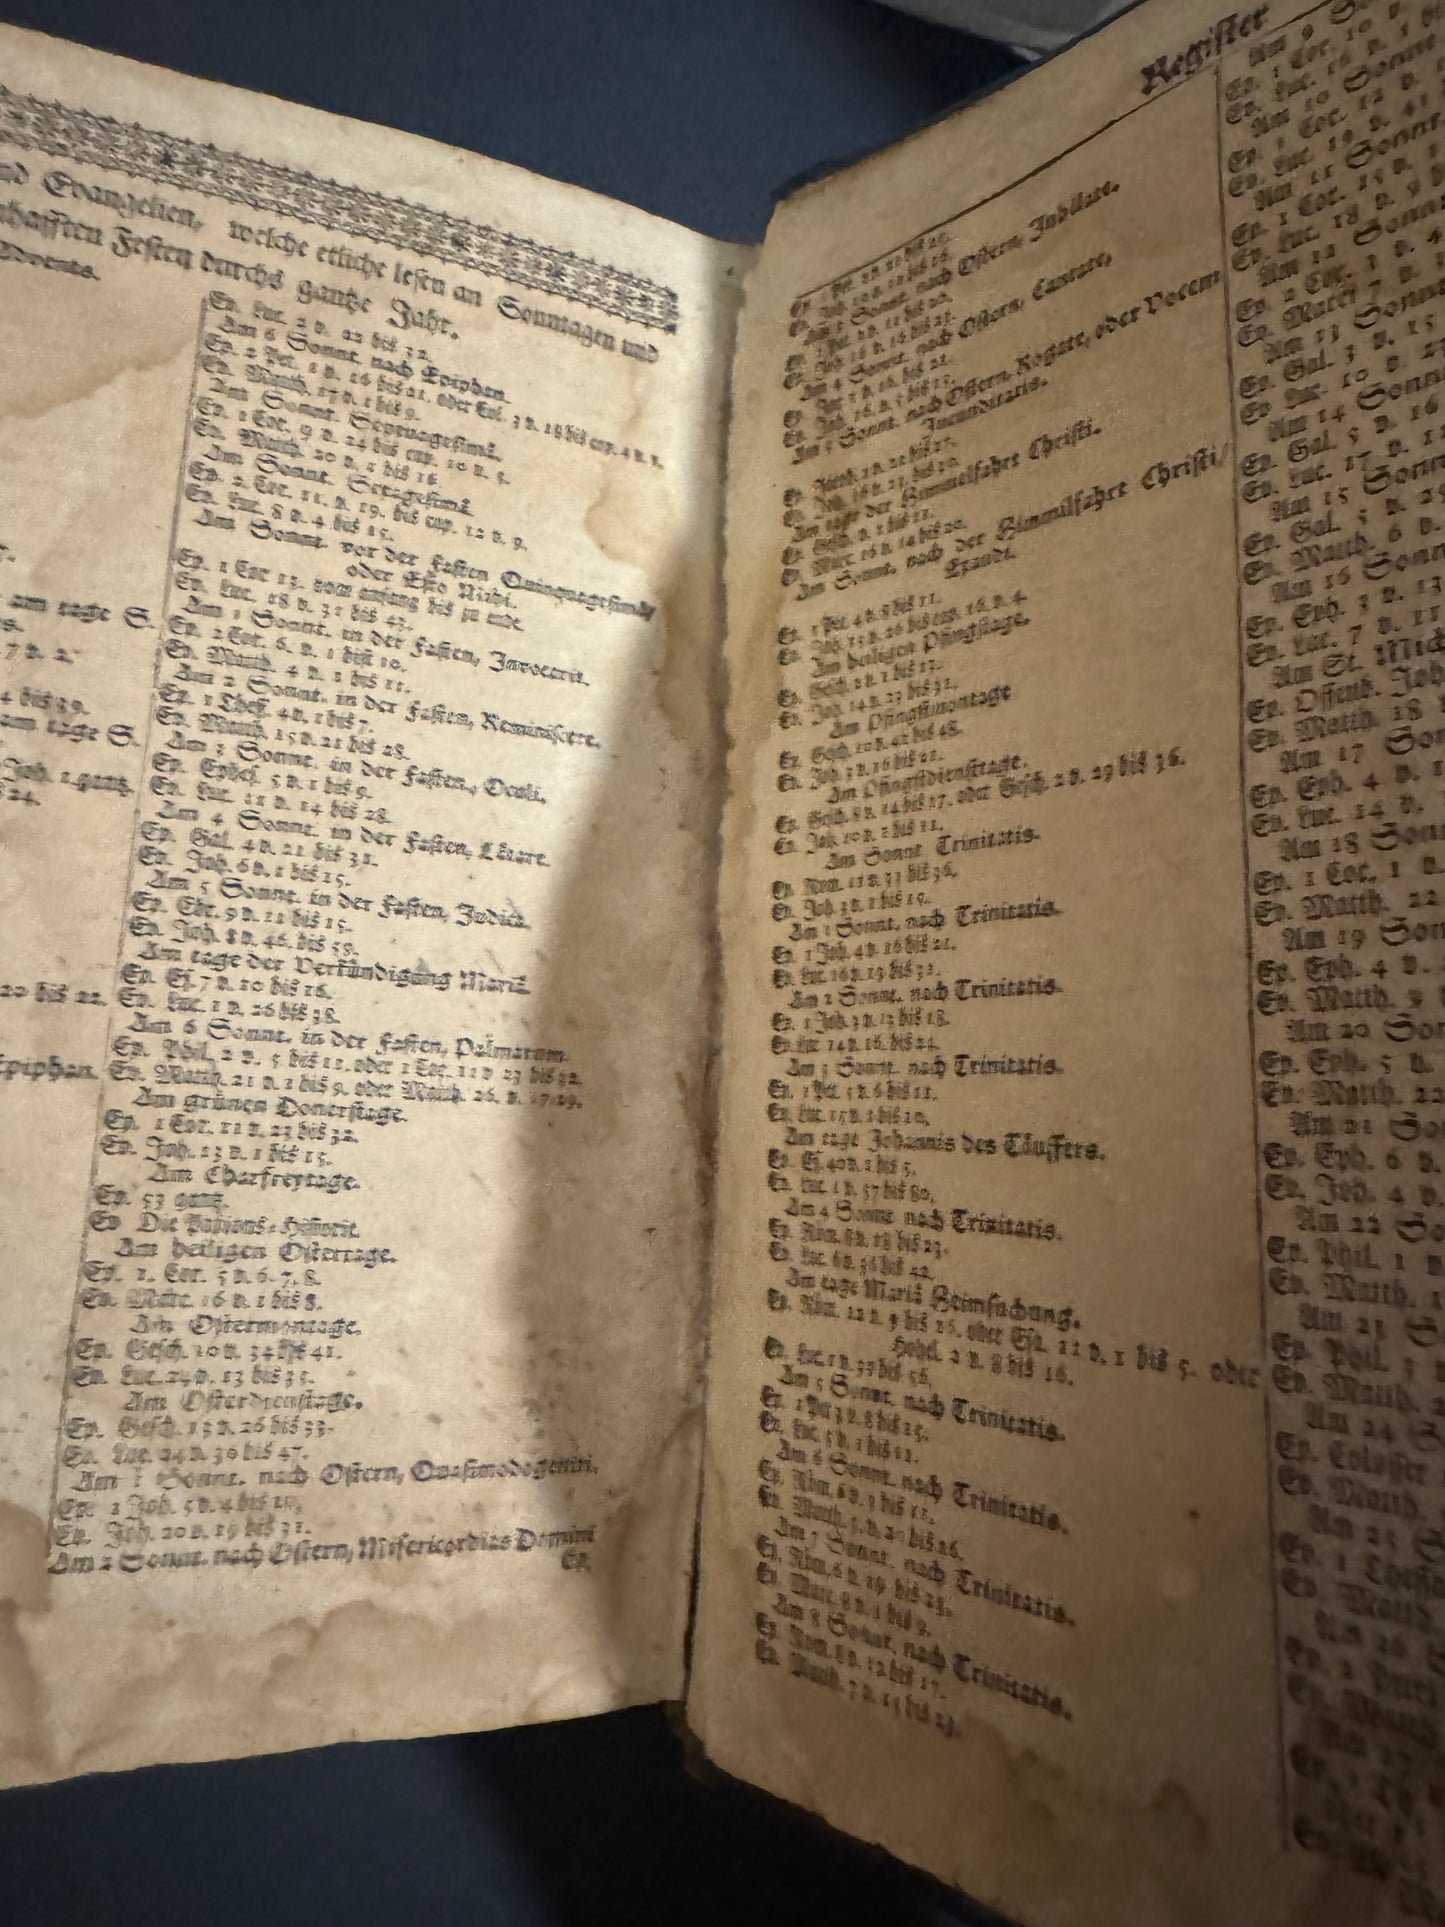 nd Evangelien, welche etliche lesen an Sonntagen und
hafften Festen durchs gantze Jahr.
Advents.
am tage S.
7 v. 2.
4 bis 39.
am tage S.
Joh. 1. gantz.
24.
20 bis 22.
Epiphan.
Ev. Luc. 2 v. 22 bis 32.
Am 6 Sonnt. nach Epiphan.
Ep. 2 Pet. 1 v. 16 bis 21. oder Col. 3 v. 18 bis cap. 4 v. 1.
Ev. Matth. 17 v. 1 bis 9.
Am Sonnt. Septuagesimä.
Ep. 1 Cor. 9 v. 24 bis cap. 10 v. 5.
Ev. Matth. 20 v. 1 bis 16.
Am Sonnt. Sexagesimä.
Ep. 2 Cor. 11. v. 19. bis cap. 12 v. 9.
Ev. Luc. 8 v. 4 bis 15.
Am Sonnt. vor der Fasten Quinquagesimä/
oder Esto Mihi.
Ep. 1 Cor 13. vom anfang bis zu ende.
Ev. Luc. 18 v. 31 bis 43.
Am 1 Sonnt. in der Fasten, Invocavit.
Ep. 2 Cor. 6. v. 1 bis 10.
Ev. Matth. 4 v. 1 bis 11.
Am 2 Sonnt. in der Fasten, Reminiscere.
Ep. 1 Thess. 4 v. 1 bis 7.
Ev. Matth. 15 v. 21 bis 28.
Am 3 Sonnt. in der Fasten, Oculi.
Ep. Ephes. 5 v. 1 bis 9.
Ev. Luc. 11 v. 14 bis 28.
Am 4 Sonnt. in der Fasten, Lätare.
Ep. Gal. 4 v. 21 bis 31.
Ev. Joh. 6 v. 1 bis 15.
Am 5 Sonnt. in der Fasten, Judica.
Ep. Ebr. 9 v. 11 bis 15.
Ev. Joh. 8 v. 46. bis 59.
Am tage der Verkündigung Mariä.
Ep. Es. 7 v. 10 bis 16.
Ev. Luc. 1 v. 26 bis 38.
Am 6 Sonnt. in der Fasten, Palmarum.
Ep. Phil. 2 v. 5 bis 11. oder 1 Cor. 11 v 23 bis 32.
Ev. Matth. 21 v. 1 bis 9. oder Matth. 26. v. 17 29.
Am grünen Donerstage.
Ep. 1 Cor. 11 v. 23 bis 32.
Ev. Joh. 13 v. 1 bis 15.
Am Charfreytage.
Ep. 53 gantz.
Ev Die Paßions-Historie.
Am heiligen Ostertage.
Ep. 1. Cor. 5 v. 6. 7. 8.
Ev. Marc. 16 v. 1 bis 8.
Am Ostermontage.
Ep. Gesch. 10 v. 34 bis 41.
Ev. Luc. 24 v. 13 bis 35.
Am Osterdienstage.
Ep. Gesch. 13 v. 26 bis 33.
Ev. Luc. 24 v. 36 bis 47.
Am 1 Sonnt. nach Ostern, Quasimodogeniti.
Ep. 1 Joh. 5 v. 4 bis 10.
Ev. Joh. 20 v. 19 bis 31.
Am 2 Sonnt. nach Ostern, Misericordias Domini
Ep.
Register
Ev. Joh. 10 v. 12 bis 16.
Am 3 Sonnt. nach Ostern, Jubilate.
Ep. 1 Pet. 2 v. 11 bis 20.
Ev. Joh. 16 v. 16 bis 23.
Am 4 Sonnt. nach Ostern, Cantate.
Ep. Jac. 1 v. 16. bis 21.
Ev. Joh. 16. v. 5 bis 15.
Am 5 Sonnt. nach Ostern, Rogate, oder Vocem
Jucunditatis.
Ep. Jacob. 1 v. 22 bis 27.
Ev. Joh. 16 v. 23. bis 30.
Am tage der Himmelfahrt Christi.
Ep. Gesch. v. 1 bis 11.
Ev. Marc. 16 v. 14 bis 20.
Am Sonnt. nach der Himmilfahrt Christi/
Exaudi.
Ep. 1 Pet 4 v. 8 bis 11.
Ev. Joh. 15 v. 26 bis cap. 16. v. 4.
Am heiligen Pfingstage.
Ep. Gesch. 2 v. 1 bis 13.
Ev. Joh. 14 v. 23 bis 31.
Am Pfingstmontage
Ep. Gesch. 10 v. 42 bis 48.
Ev. Joh. 3 v. 16 bis 21.
Am Pfingstdienstage.
Ep. Gesch. 8 v. 14 bis 17. oder Gesch. 2 v. 29 bis 36.
Ev. Joh. 10 v. 1 bis 11.
Am Sonnt Trinitatis.
Ep. Rom. 11 v. 33 bis 36.
Ev. Joh. 3 v. 1 bis 15.
Am 1 Sonnt. nach Trinitatis.
Ep. 1 Joh. 4 v. 16 bis 21.
Ev. Luc. 16 v. 19 bis 31.
Am 2 Sonnt. nach Trinitatis.
Ep. 1 Joh. 3 v. 13 bis 18.
Ev. Luc 14 v. 16. bis 24.
Am 3 Sonnt. nach Trinitatis.
Ep. 1 Pet. 5 v. 6 bis 11.
Ev. Luc. 15 v. 1 bis 10.
Am tage Johannis des Täuffers.
Ep. Es. 40 v. 1 bis 5.
Ev. Luc. 1 v. 57 bis 80.
Am 4 Sonnt nach Trinitatis.
Ep. Rom. 8 v. 18 bis 23.
Ev. Luc. 6 v. 36 bis 42.
Am tage Mariä Heimsuchung.
Ep. Rom. 12 v. 9 bis 16. oder Es. 11 v. 1 bis 5. oder
Hohel. 2 v. 8 bis 16.
Ev. Luc. 1 v. 39 bis 56.
Am 5 Sonnt. nach Trinitatis.
Ep. 1 Pet 3 v. 8 bis 15.
Ev. Luc. 5 v. 1 bis 11.
Am 6 Sonnt. nach Trinitatis.
Ep. Rom. 6 v. 3 bis 11.
Ev. Matth. 5. v. 20 bis 26.
Am 7 Sonnt. nach Trinitatis.
Ep. Rom. 6 v. 19 bis 23.
Ev. Marc. 8 v. 1 bis 9.
Am 8 Sonnt. nach Trinitatis.
Ep. Rom. 8 v. 12 bis 17.
Ev. Matth. 7 v. 15 bis 23.
Am 9 So
Ep. 1 Cor. 10
Ev. Luc. 16 v. 1
Am 10 Sonnt
Ep. 1 Cor. 12
Ev. Luc. 19 v. 41
Am 11 Sonnt
Ep. 1 Cor. 15 v. 1
Ev. Luc. 18 v. 9
Am 12 Sonnt
Ep. 2 Cor. 3 v. 4
Ev. Marci 7 v. 3
Am 13 Sonnt
Ep. Gal. 3 v. 15
Ev. Luc. 10 v. 23
Am 14 Sonn
Ep. Gal. 5 v. 16
Ev. Luc. 17 v. 11
Am 15 Sonn
Ep. Gal. 5 v. 25
Ev. Matth. 6 v.
Am 16 Sonn
Ep. Eph. 3 v. 13
Ev. Luc. 7 v. 11
Am St. Mich
Ep. Offenb. Joh
Ev. Matth. 18
Am 17 Son
Ep. Eph. 4 v. 1
Ev. Luc. 14 v.
Am 18 Son
Ep. 1 Cor. 1 v.
Ev. Matth. 22
Am 19 Son
Ep. Eph. 4 v.
Ev. Matth. 9
Am 20 Son
Ep. Eph. 5 v.
Ev. Matth. 22
Am 21 So
Ep. Eph. 6 v.
Ev. Joh. 4 v.
Am 22 So
Ep. Phil. 1 v
Ev. Matth. 1
Am 23 S
Ep. Phil. 3
Ev. Matth. 2
Am 24 S
Ep. Colosser
Ev. Matth.
Am 25 S
Ep. 1 Thess
Ev. Matth
Am 26
Ep. 2 Petri
Ev. Matth